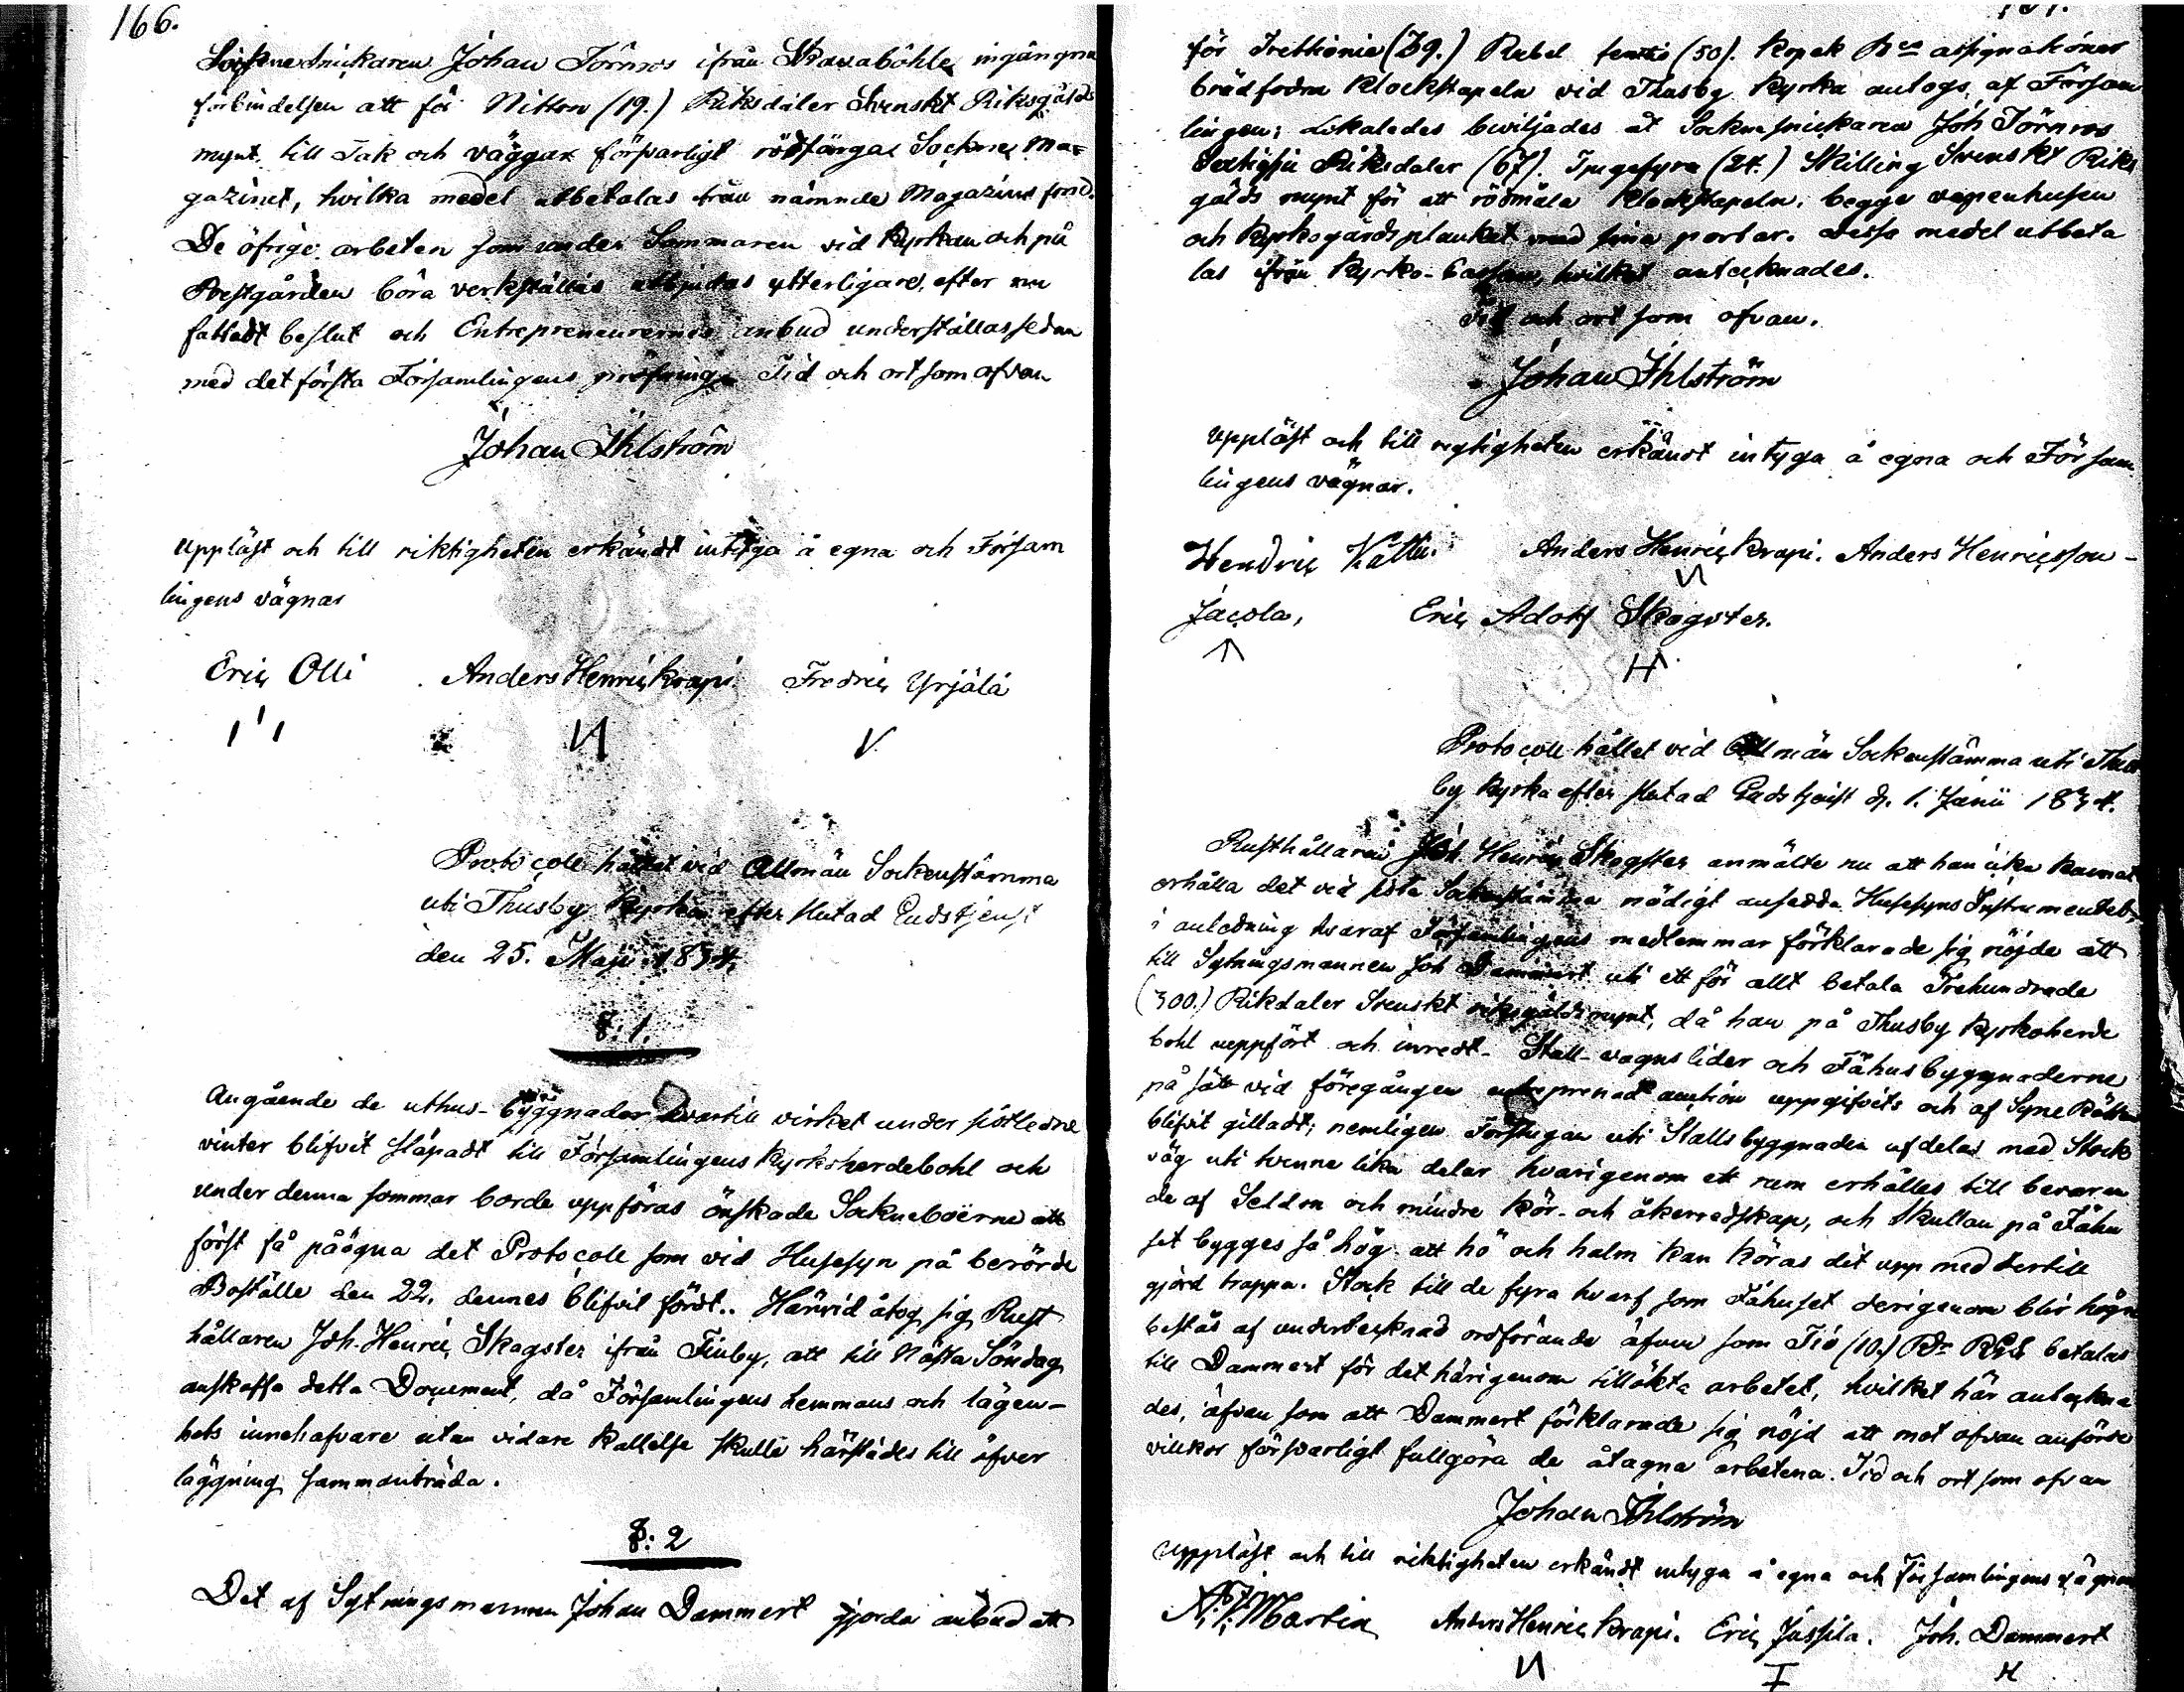 166.
Sockne Snickaren Johan Törnros ifrån Skavaböhle ingångna
förbindelsen att för Nitton (19.) Riksdaler Svenskt Riksgälds
mynt, till Tak och väggar försvarligt rödfärga Sockne Ma-
gazinet, hvilka medel utbetalas från nämnde Magazins fond.
De öfrige arbeten som under Sommaren vid Kyrkan och på
Prestgården böra verkställas utbjudas ytterligare, efter nu
fattadt beslut och Entrepreneurernes anbud underställas sedan
med det första Församlingens pröfning. Tid och ort som ofvan
Johan Ihlström
Uppläst och till riktigheten erkändt intyga å egna och Försam
lingens vägnar
Eric Olli Anders Henric Krapi Fredric Yrjälä
Protocoll hållet vid Allmän Sockenstämma
uti Thusby Kyrka efter slutad Gudstjenst
den 25. Maji 1834.
§. 1.
Angående de uthus-byggnader hvartill virket under sistledne
vinter blifvit släpadt till Församlingens Kyrkoherdebohl och
under denna sommar borde uppföras önskade Sockneboerne att
först få påögna det Protocoll som vid Husesyn på berörde
Boställe den 22. dennes blifvit fördt. Härvid åtog sig Rust
hållaren Joh. Henric Skogster ifrån Finby, att till Nästa Söndag
anskaffa detta Document, då Församlingens hemmans och lägen-
hets innehafvare utan vidare kallelse skulle härstädes till öfver
läggning sammanträda.
§. 2
Det af Sytningsmannen Johan Dammert gjorda anbud att
för Trettionio (39.) Rubel femtio (50). Kopek Bco assignationer
brädfodra Klockstapeln vid Thusby Kyrka antogs af Försam
lingen; Likaledes beviljades åt Socknesnickaren Joh Törnros
Sextiosju Riksdaler (67). Tjugofyra (24.) Skilling Svenskt Riks
gälds mynt för att rödmåla Klockstapeln, begge vapenhusen
och Kyrkogårdsplanket med sina portar. Dessa medel utbeta
las ifrån Kyrko-Cassan, hvilket antecknades.
Tid och ort som ofvan.
Johan Ihlström
Uppläst och till rigtigheten erkändt intyga å egna och Försam
lingens vägnar.
Hendric Anders Henric Krapi. Anders Henricsson -
Jacola, Eric Adolf Skogster.
Protocoll hållet vid Allmän Sockenstämma uti Thus
by Kyrka efter slutad Gudstjenst d. 1. Junii 1834.
Rusthållaren Joh. Henric Skogster anmälte nu att han icke kunnat
erhålla det vid sista Sockenstämma nödigt ansedda Husesyns Instrumentet,
i anledning hvaraf Församlingens medlemmar förklarade sig nöjde att
till Sytningsmannen Joh Dammert uti ett för allt betala Trehundrade
(300.) Rikdaler Svenskt riksgälds mynt, då han på Thusby Kyrkoherde
bohl uppfört och inredt Stall- vagnslider och Fähusbyggnaderne
på sätt vid föregången entreprenad auction uppgifvits och af Syne Rätten
blifvit gilladt; nemligen Förstugan uti Stallsbyggnaden afdelas med Stock
väg uti tvenne lika delar hvarigenom ett rum erhålles till bevaran
de af Seldon och mindre kör- och åkerredskap, och Skullan på Fähu
set bygges så hög att hö och halm kan köras dit upp med dertill
gjord trappa. Stock till de fyra hvarf som Fähuset derigenom blir högre
bestås af undertecknad ordförande äfven som Tio (10.) Rdr RGS betalas
till Dammert för det härigenom tillökta arbetet, hvilket här anteckna
des, äfven som att Dammert förklarade sig nöjd att mot ofvan anförde
villkor försvarligt fullgöra de åtagna arbetena. Tid och ort som ofvan
Johan Ihlström
Uppläst och till riktigheten erkändt intyga å egna och Församlingens vägnar
Martin Anders Henric Krapi. Eric Jussila. Joh. Dammert